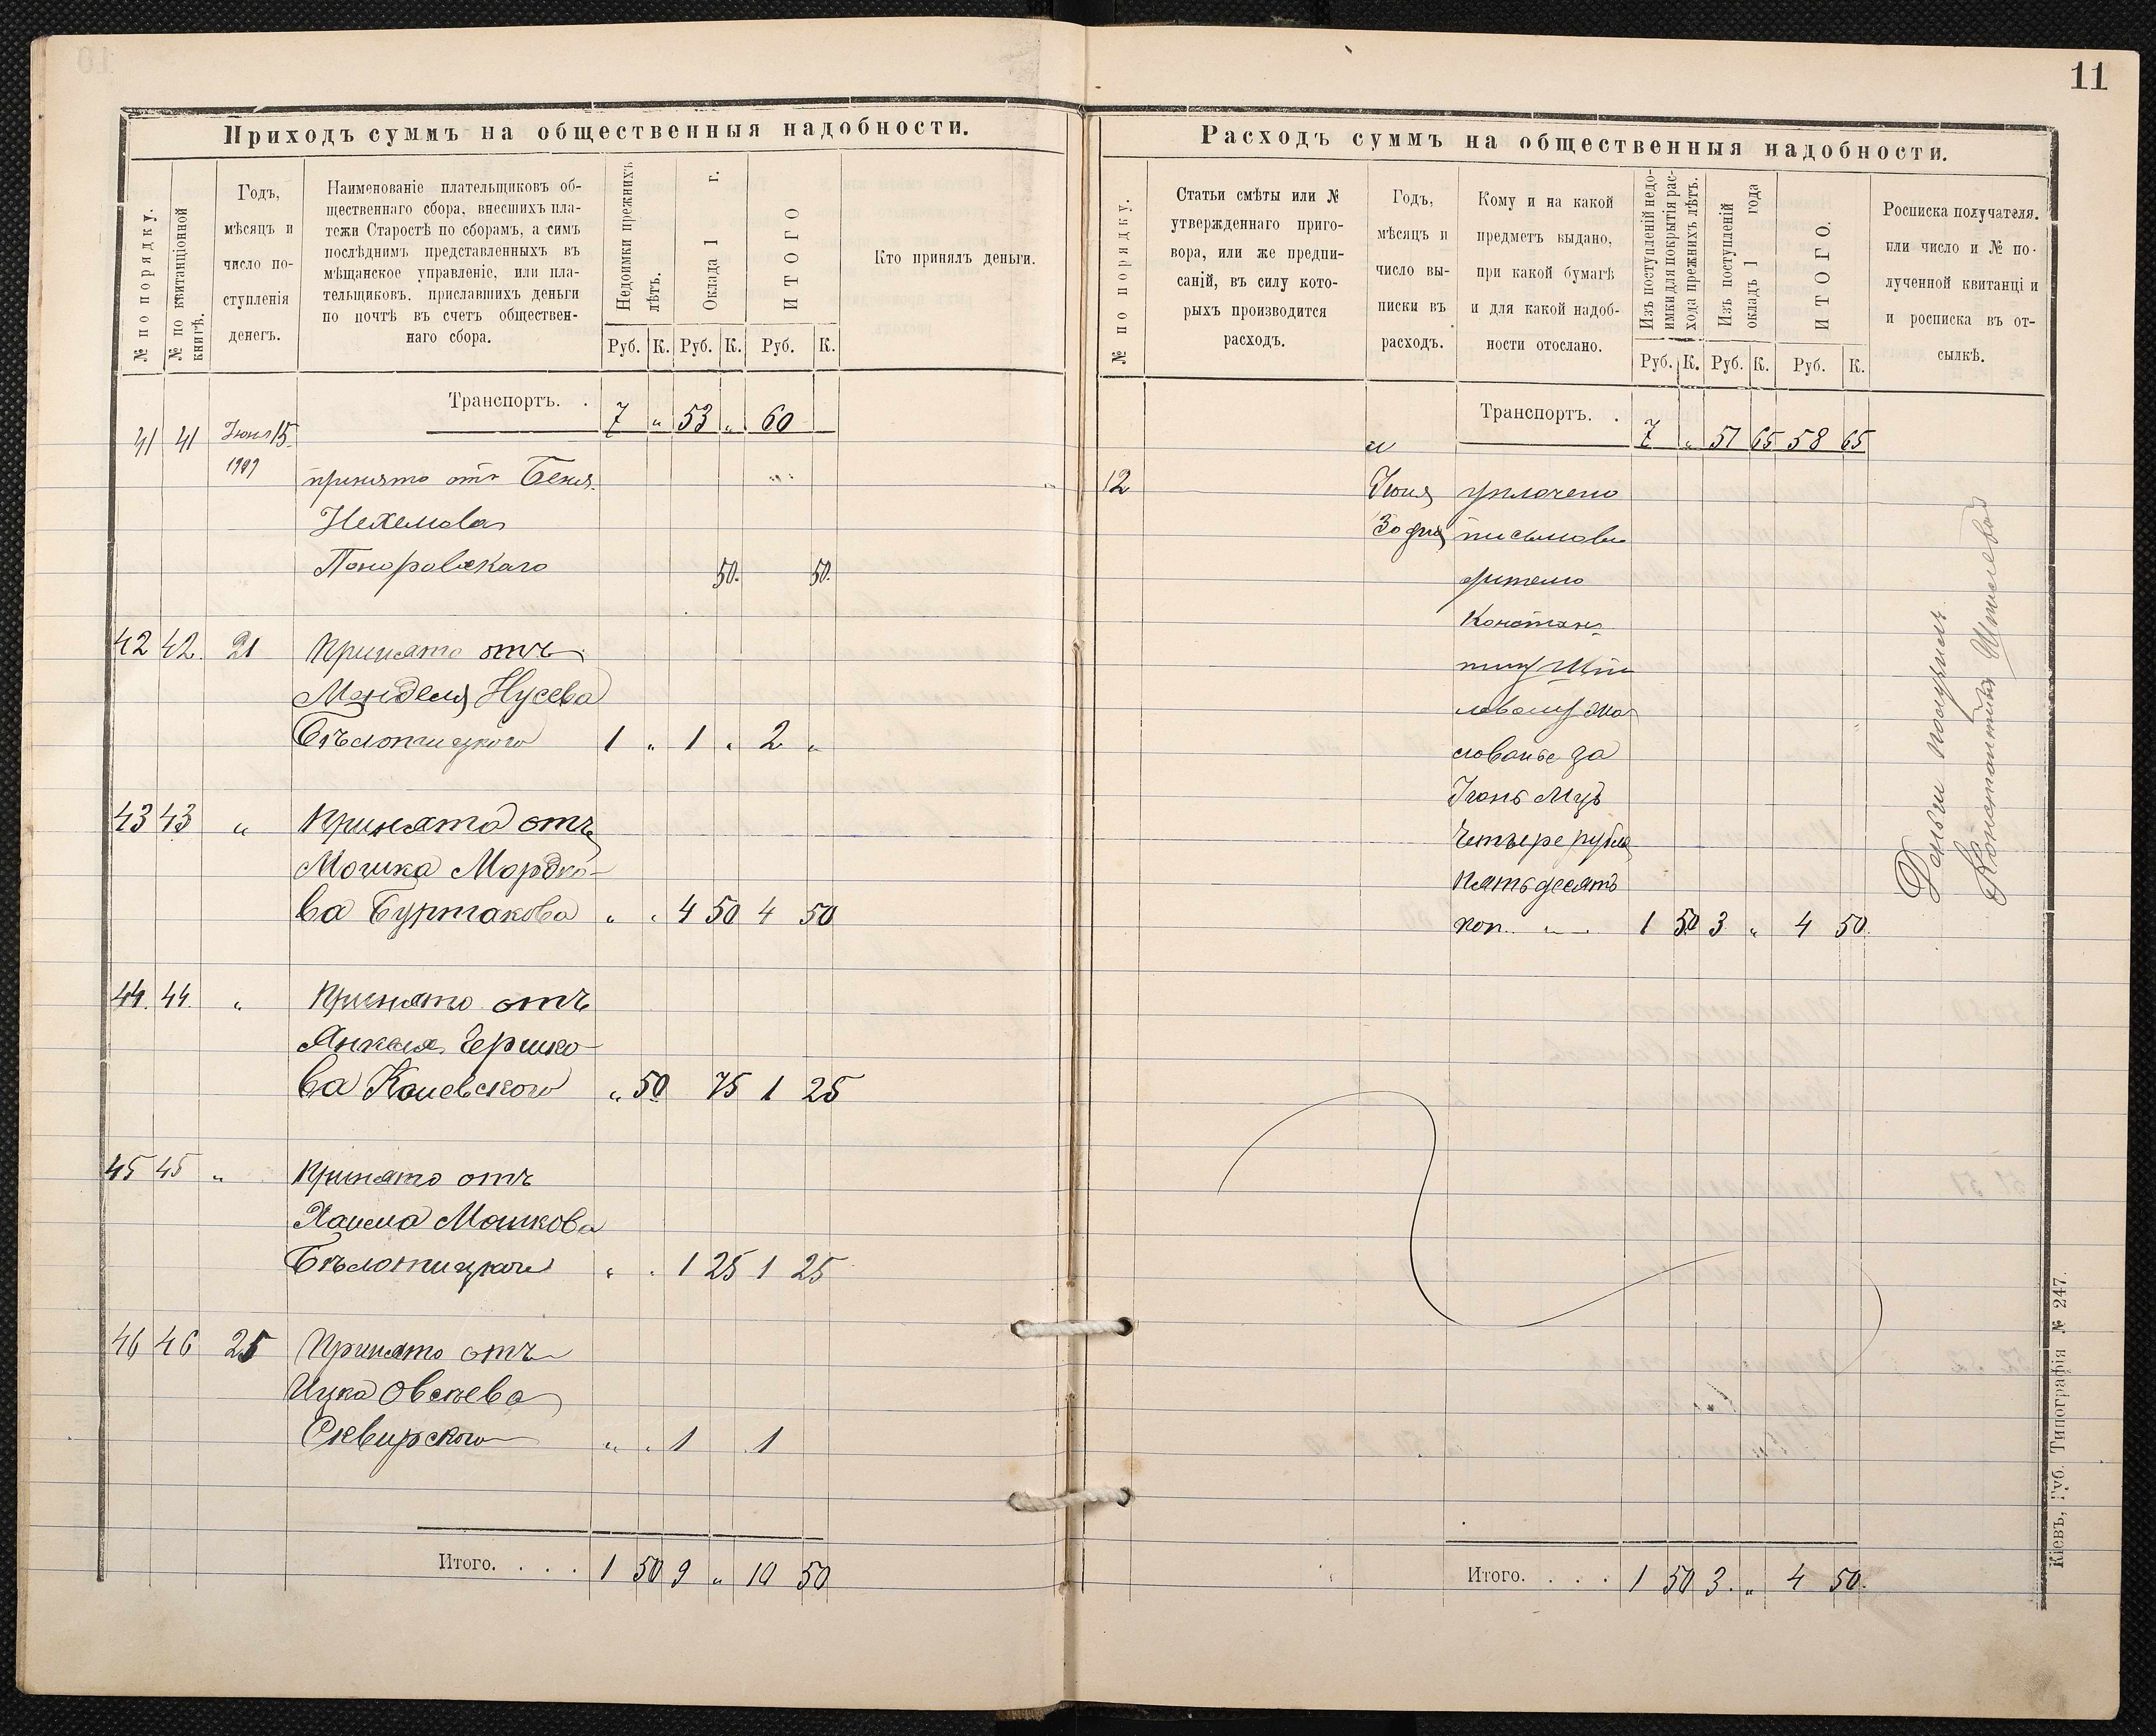 11
Приходъ суммъ на общественныя надобности.
№ по порядку.
№ по квитанціонной книгѣ.
Годъ,
мѣсяцъ и
число по-
ступленія
денегъ.
Наименованіе плательщиковъ об-
щественнаго сбора, внесшихъ пла-
тежи Старостѣ по сборамъ, а симъ
послѣднимъ представленныхъ въ
мѣщанское управленіе, или пла-
тельщиковъ. приславшихъ деньги
по почтѣ въ счетъ обществен-
наго сбора.
Недоимки прежнихъ лѣтъ.
Оклада 1 г.
ИТОГО
Руб. К. Руб. К. Руб. К.
Кто принялъ деньги.
Транспортъ. . 7 „ 53 „ 60
41 41 Іюня 15
1909
принято отъ
Нехемова
50. 50.
42 42. 21 Принято отъ
Менделя Нусева
Бѣлопицкого 1 „ 1 „ 2 „
43 43 „ Принято отъ
Мошка Мордко-
ва Буртакова „ „ 4 50 4 50
44. 44. „ Принято отъ
Янкеля Гершко-
ва Каневского „ 50 75 1 25
45 45 „ Принято отъ
Хаима Мошкова
„ „ 1 25 1 25
46 46 25 Принято отъ
Ицка Овсѣева
Сквирского „ „ 1 1
Итого. . . . 1 50 9 „ 10 50
Расходъ суммъ на общественныя надобности.
№ по порядку.
Статьи смѣты или №
утвержденнаго приго-
вора, или же предпи-
саній, въ силу кото-
рыхъ производится
расходъ.
Годъ,
мѣсяцъ и
число вы-
писки въ
расходъ.
Кому и на какой
предметъ выдано,
при какой бумагѣ
и для какой надоб-
ности отослано.
Изъ поступленій недо-
имки для покрытія рас-
хода прежнихъ лѣтъ.
Изъ поступленій
окладъ 1 года
ИТОГО.
Руб. К. Руб. К. Руб. К.
Росписка получателя.
или число и № по-
лученной квитанці и
и росписка въ от-
сылкѣ.
Транспортъ. . 7 „ 51 65 58 65
12 Іюня уплочено
30 дня письмово
дителю
Констан-
тину
жа
лованье за
Іюнь Мцъ
Четыре рубля
пятьдесятъ
коп. 1 50 3 „ 4 50.
Деньги получилъ
Константинъ
Итого. . . . 1 50 3. „ 4 50.
Кіевъ, Губ. Типографія № 247.